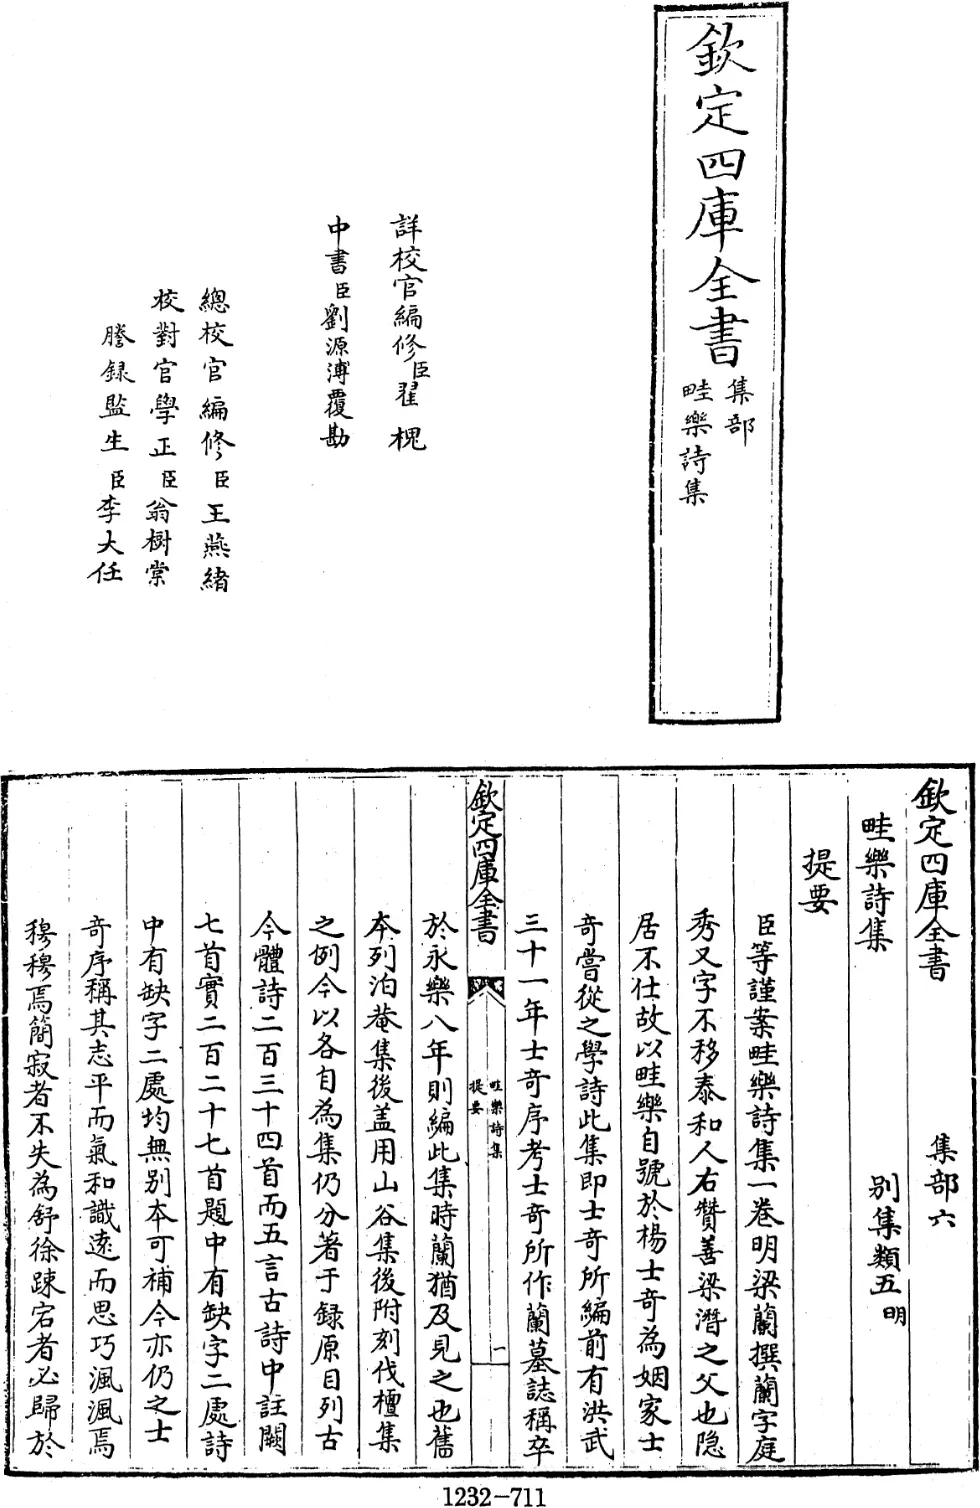 欽定四庫全書
集部
畦樂詩集
詳校官編修臣翟槐
中書臣劉源溥覆勘
總校官編修臣王燕緒
校對官學正臣翁樹棠
謄録監生臣李大任
欽定四庫全書 集部六
畦樂詩集 别集類五明
提要
臣等謹案畦樂詩集一卷明梁蘭撰蘭字庭
秀又字不移泰和人右贊善梁潛之父也隠
居不仕故以畦樂自號於楊士奇為姻家士
奇嘗從之學詩此集即士奇所編前有洪武
三十一年士奇序考士奇所作蘭墓誌稱卒
欽定四庫全書
畦樂詩集
提要
一
於永樂八年則編此集時蘭猶及見之也舊
本列泊菴集後盖用山谷集後附刻伐檀集
之例今以各自為集仍分著于録原目列古
今體詩二百三十四首而五言古詩中註闕
七首實二百二十七首題中有缺字二處詩
中有缺字二處均無别本可補今亦仍之士
奇序稱其志平而氣和識逺而思巧渢渢焉
穆穆焉簡寂者不失為舒徐踈宕者必歸於
1232-711